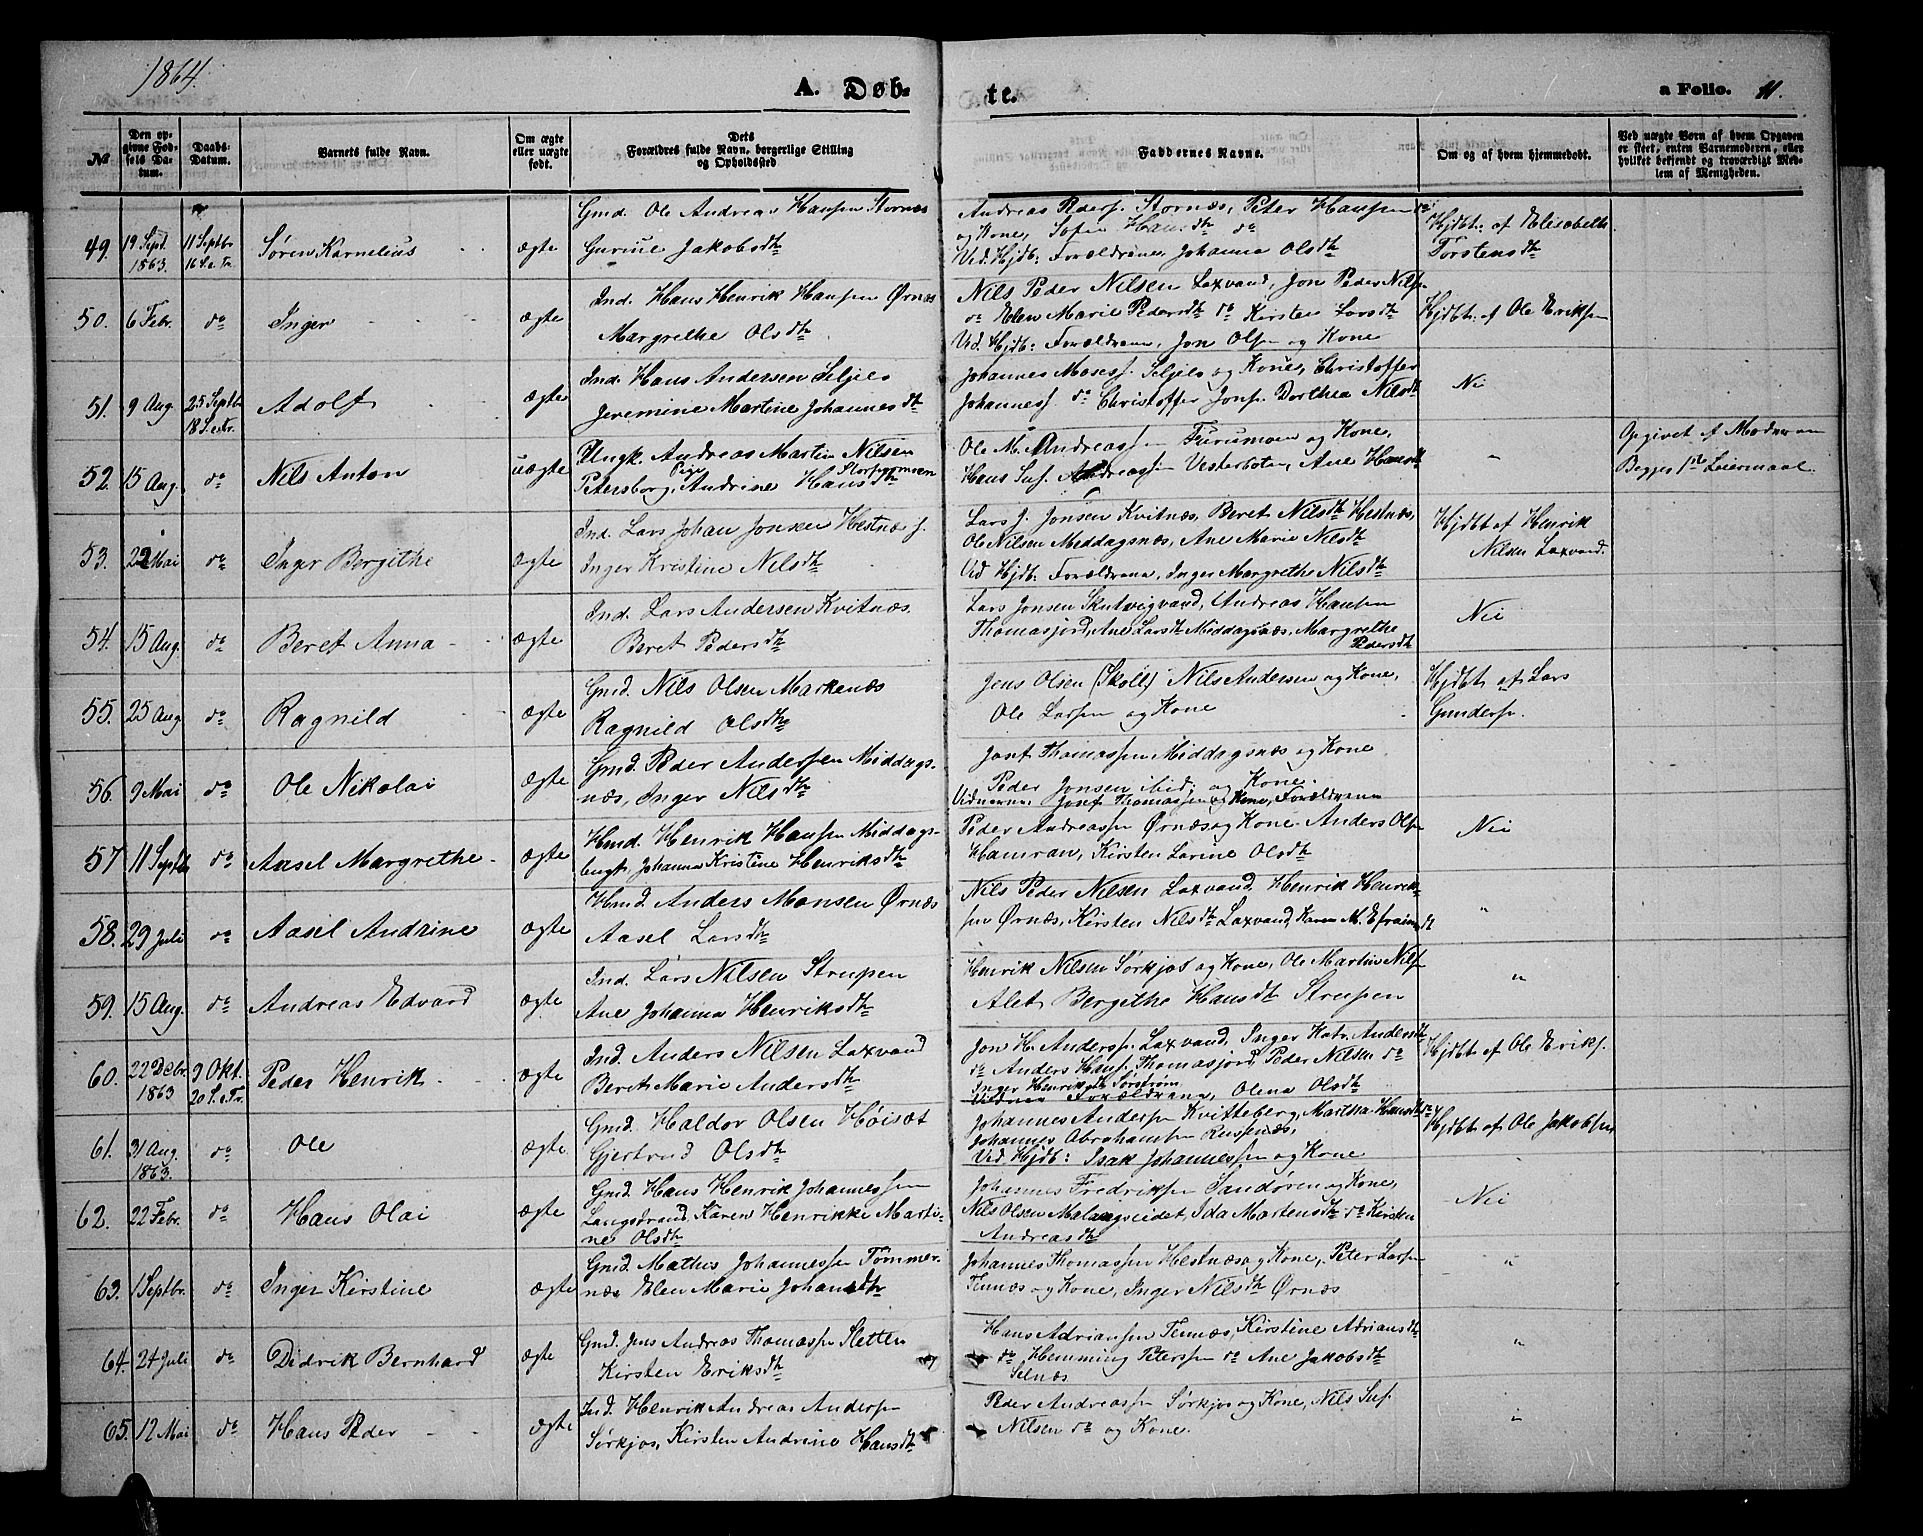 1864.
A. Døb-
te.
a Folio. 11.
No
Den opgivne Fødsels Datum.
Daabs-Datum.
Barnets fulde Navn.
Om ægte eller uægte født.
Dets Forældres fulde Navn, borgerlige Stilling og Opholdssted
Faddernes Navne.
Om og af hvem hjemmedøbt.
Ved uægte Børn af hvem Opgaven er skeet, enten Barnemoderen, eller hvilket bekjendt og troværdigt Medlem af Menigheden.
49. 19 Sept. 1863. 11 Septbr 16 S. e. Tr. Søren Kornelius ægte
Gmd. Ole Andreas Hansen Stornæs
Gurine Jakobsdtr
Andreas Peders. Stornæs, Peter Hansen
og Kone, Sofie Hansdtr do
Ved Hjdb: Forældrene, Johanna Olsdtr
Hjdbt: af Elisabeth
Torstensdtr
50. 6 Febr. do Inger ægte
Ind. Hans Henrik Hansen Ørnæs
Margrethe Olsdtr
Nils Peder Nilsen Laxvand, Jon Peder Nils.
do Elen Marie Pedersdtr do Kirsten Larsdtr
Ved. Hjdb: Forældrene, Jon Olsen og Kone
Hjdbt: af Ole Eriksen
51. 9 Aug. 25 Septbr 18 S. e. Tr. Adolf ægte
Ind. Hans Andersen Seljelo
Jeremine Martine Johannesdtr
Johannes Moses. Seljelo og Kone, Christoffer
Johanness. do Christoffer Jons. Dorthea Nilsdtr
Nei
52. 15 Aug. do Nils Anton uægte
Ungk. Andreas Martin Nilsen
Petersborg, Pige Andrine Hansdtr Storsteinnes
Ole M. Andreassen Furumoen og Kone,
Hans Andreassen Vesterbotn, Ane Hansdtr
"
Opgivet af Moderen
Begges 1ste Leiermaal.
53. 22 Mai do Inger Bergithe ægte
Ind. Lars Johan Jonsen Hestnæs
Inger Kristine Nilsdtr
Lars J. Jonsen Kvitnæs, Beret Nilsdtr Hestnæs,
Ole Nilsen Middagsnæs, Ane Marie Nilsdtr
Ved Hjdb: Forældrene, Inger Margrethe Nilsdtr
Hjdbt af Henrik
Nilsen Laxvand.
54. 15 Aug. do Beret Anna ægte
Ind. Lars Andersen Kvitnæs
Beret Pedersdtr
Lars Jonsen Skutvigvand, Andreas Hansen
Thomasjord, Ane Larsdtr Middagsnæs, Margrethe
Pedersdtr
Nei
55. 25 Aug do Ragnild ægte
Gmd. Nils Olsen Markenæs
Ragnild Olsdtr
Jens Olsen (Skoll) Nils Andersen og Kone,
Ole Larsen og Kone
Hjdbt af Lars
Gunders.
56. 9 Mai do Ole Nikolai ægte
Gmd. Peder Andersen Middags-
næs, Inger Nilsdtr
Josef Thomassen Middagsnæs og Kone
Peder Jonsen ibid. og Kone.
Vidnerne: Josef Thomassen og Kone, Forældrene
57 11 Septbr do Aasel Margrethe ægte
Hmd. Henrik Hansen Middags-
bugt, Johanna Kristine Henriksdtr
Peder Andreassen Ørnæs og Kone. Anders Olsen
Hamran, Kirsten Larine Olsdtr
Nei
58. 29 Juli do Aasel Andrine ægte
Hmd Anders Monsen Ørnæs
Aasel Larsdtr
Nils Peder Nilsen Laxvand, Henrik Henrik-
sen Ørnæs, Kirsten Nilsdtr Laxvand, Karen M. Efraimsdt
"
59. 15 Aug. do Andreas Edvard ægte
Ind. Lars Nilsen Strupen
Ane Johanna Henriksdtr
Henrik Nilsen Sørkjos og Kone, Ole Martin Nils.
Alet Bergithe Hansdtr Strupen
"
60. 22 Debr. 1863 9 Okt. 20 S. e. Tr. Peder Henrik ægte
Ind. Anders Nilsen Laxvand
Beret Marie Andersdtr
Jon H. Anders. Laxvand, Inger Katr. Andersdtr
do Anders Hans. Thomasjord, Peder Nilsen do
Inger Henriksdtr Sørstrøm
Vidner Forældrene, Olena Olsdtr
Hjdbt af Ole Eriks.
61. 31 Aug. 1863. do Ole ægte
Gmd. Haldor Olsen Høiset
Gjertrud Olsdtr
Johannes Andersen Kvitteberg, Martha Hansdtr do
Johannes Abrahamsen Russenæs,
Ved. Hjdb: Isak Johannessen og Kone
Hjdbt af Ole Jakobsen
62. 22 Febr. do Hans Olai ægte
Gmd. Hans Henrik Johannessen
Langstrand, Karen Henrikke Marti-
ne Olsdtr
Johannes Fredriksen Sandøren og Kone,
Nils Olsen Malangseidet, Ida Martensdtr do Kirsten
Andreasdtr
Nei
63. 1 Septbr. do Inger Kirstine ægte
Gmd. Mathis Johannessen Tømmer-
næs Elen Marie Johansdtr
Johannes Thomassen Hestnæs og Kone, Peter Larsen
Tennæs og Kone, Inger Nilsdtr Ørnæs
"
64. 24 Juli do Didrik Bernhard ægte
Gmd. Jens Andreas Thomassen Sletten
Kirsten Eriksdtr
Hans Adriansen Tennæs, Kirstine Adriansdtr
do Hemming Petersen do Ane Jakobsdtr
Selnæs
"
65. 12 Mai do Hans Peder ægte
Ind. Henrik Andreas Andersen
Sørkjos, Kirsten Andrine Hansdtr
Peder Andreassen Sørkjos og Kone, Nils
Nilsen do og Kone.
"